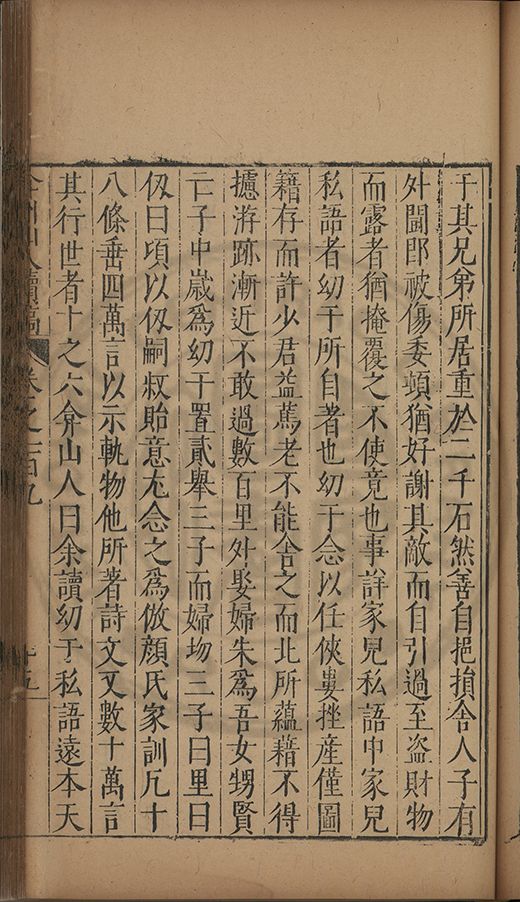 于其兄弟所居重於二千石然善自挹損舍人子有
外鬩郎被傷委頓猶好謝其敵而自引過至盗財物
而露者猶掩覆之不使竟也事詳家兒私語中家兒
私語者幼于所自者也幼于念以任俠婁挫產僅圖
籍存而許少君益蒿老不能舍之而北所蘊藉不得
攄游跡漸近不敢過數百里外娶婦朱爲吾女甥賢
亡子中歲爲幼于置貳舉三子而婦均三子曰里曰
伋曰頊以伋嗣叔貽意尤念之爲倣顏氏家訓凡十
八條垂四萬言以示軌物他所著詩文又數十萬言
其行世者十之六弇山人曰余讀幼于私語遠本天
弇州山人續稿 卷之一百九 十五